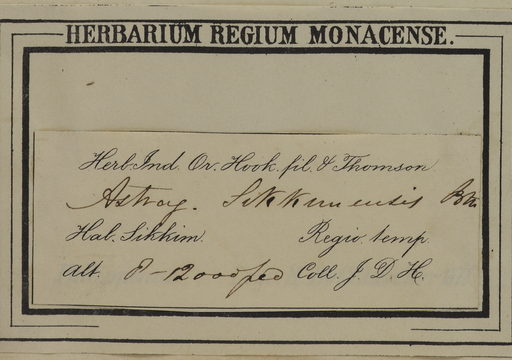 HERBARIUM REGIUM MONACENSE.
Herb. Ind. Or. Hook. fil. & Thomson
Astrag. Sikkimensis
Hab. Sikkim Regio. temp.
alt. 8-12000 ped Coll. J. D. H.